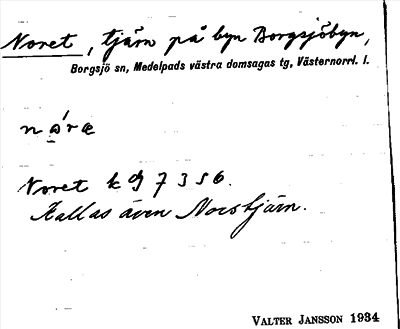 Noret, tjärn på byn Borgsjöbyn,
Borgsjö sn, Medelpads västra domsagas tg, Västernorrl. l.
nọ́ræ
Noret k OJ 7356.
Kallas även Norstjärn.
VALTER JANSSON 1934